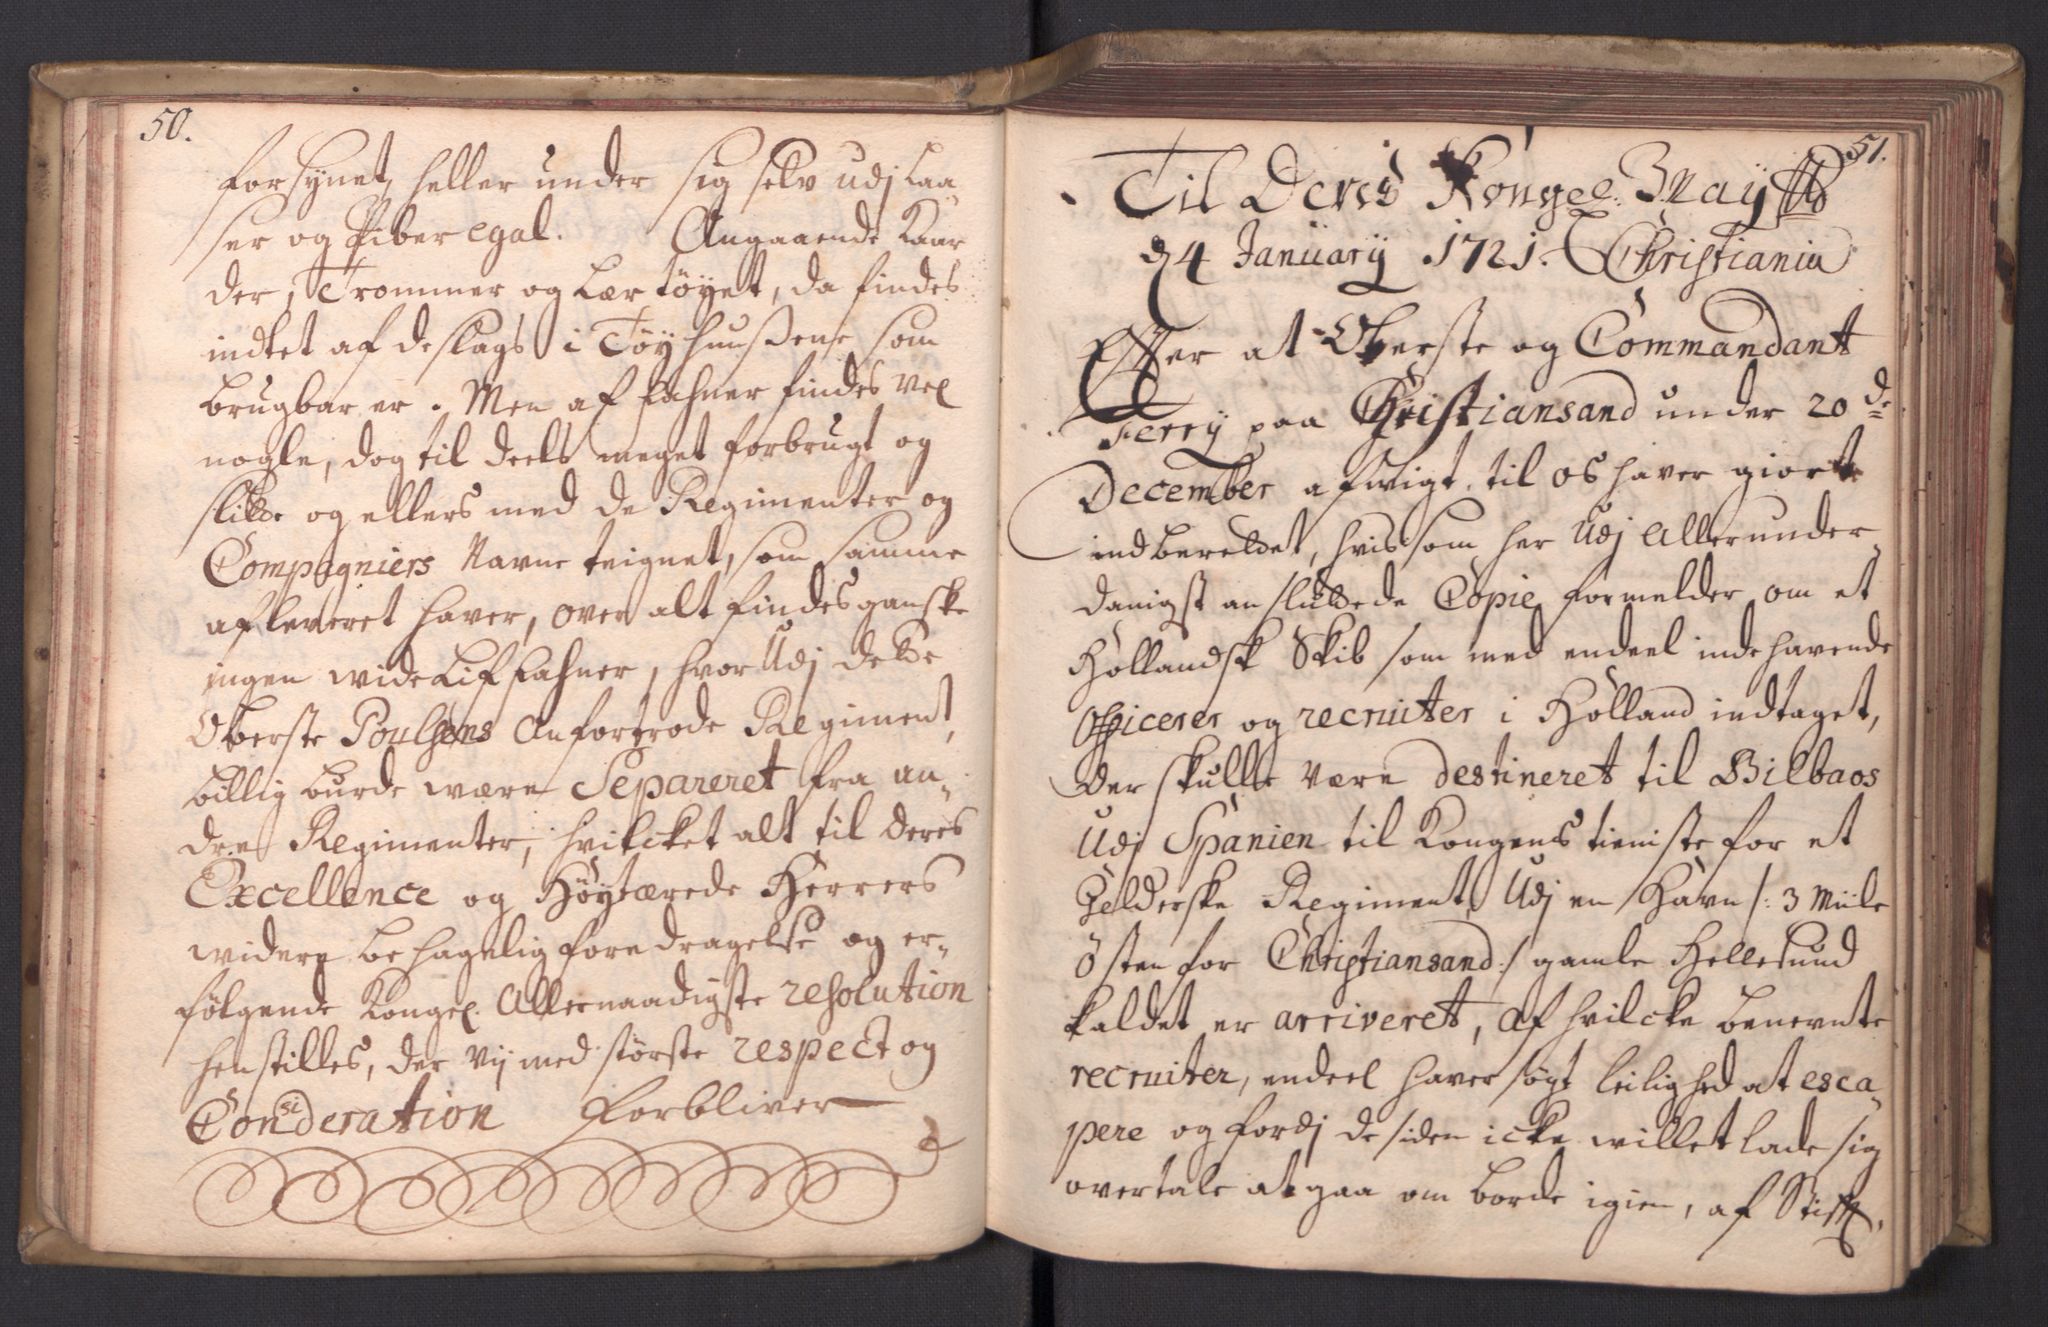 50.
forsynet, heller under sig selv udj Laa-
ser og Piber egal. Angaaende Kaar
der, Trommer og Lærtöyet, da findes
indtet af deslags i Töyhuusene som
brugbar er. Men af Fahner findes vel
nogle, dog til deels meget forbrugt og
slidte og ellers med de Regimenter og
Compagniers Navne teignet, som samme
afleveret haver, over alt findes ganske
ingen wide Lif Fahner, hvor Udj dette
Oberste Poulsens Anfortrode Regiment,
billig burde være Separeret fra an-
dre Regimenter, hvilcket alt til Deres
Excellence og Höytærede Herrers
widere behagelig foredragelse og er-
fölgende Kongel. Allernaadigste resolution
henstilles, der Vij med störste respect og
Consideration Forbliver
51.
Til Deres Kongel. Mayts
d 4 January 1721. Christiania
Efter at Oberste og Commandant
Ferry paa Christiansand under 20de
December afwigt til os haver giort
indberettet, hvis som her Udj Allerunder-
danigst ansluttede Copie formelder om et
Hollandsk Skib som med endeel indehavende
Officerer og recruiter i Holland indtaget,
der skulle være destineret til Bilbaos
Udj Spanien til Kongens tieniste for et
Gelderske Regiment, Udj en Havn /: 3 Miile
östen for Christiansand :/ gamle Hellesund
kaldet er arriveret, af hvilcke benevnte
recruiter, endeel haver sögt leilighed at esca-
pere og fordj de siden icke willet lade sig
overtale at gaa om borde igien, af Stift,